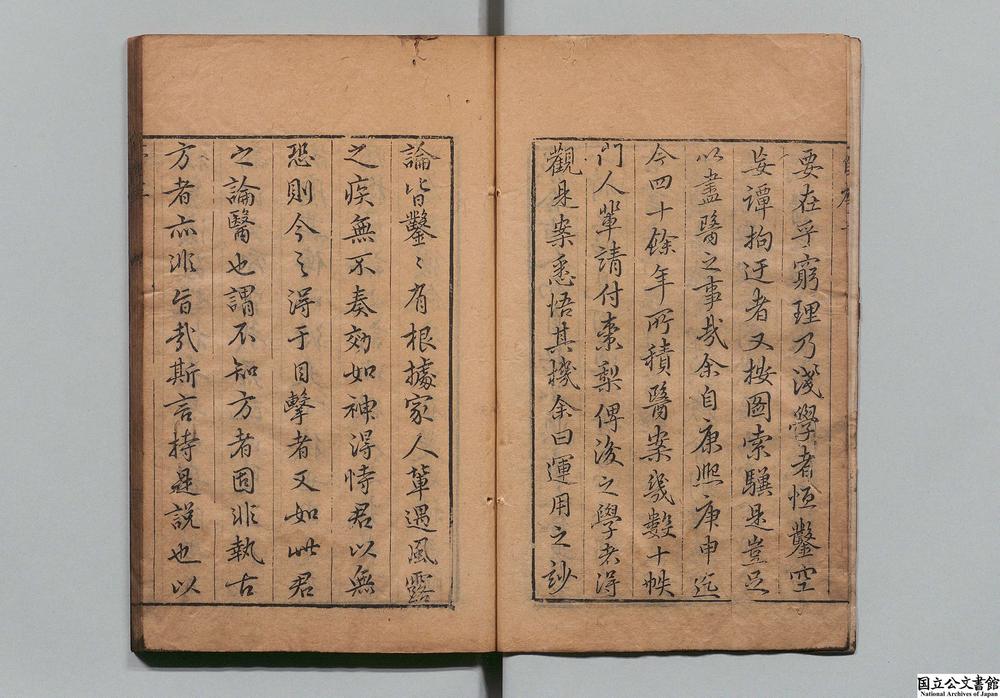 要在乎窮理乃淺學者恒鑿空
妄譚拘迂者又按圖索驥是豈足
以盡醫之事哉余自康熙庚申迄
今四十餘年所積醫案幾數十帙
門人輩請付棗梨俾後之學者得
觀是案悉悟其機余曰運用之妙
論皆鑿〻有根據家人輩遇風露
之疾無不奏効如神得恃君以無
恐則今之得于目擊者又如此君
之論醫也謂不知方者固非執古
方者亦非旨哉斯言持是說也以
国立公文書館
National Archives of Japan